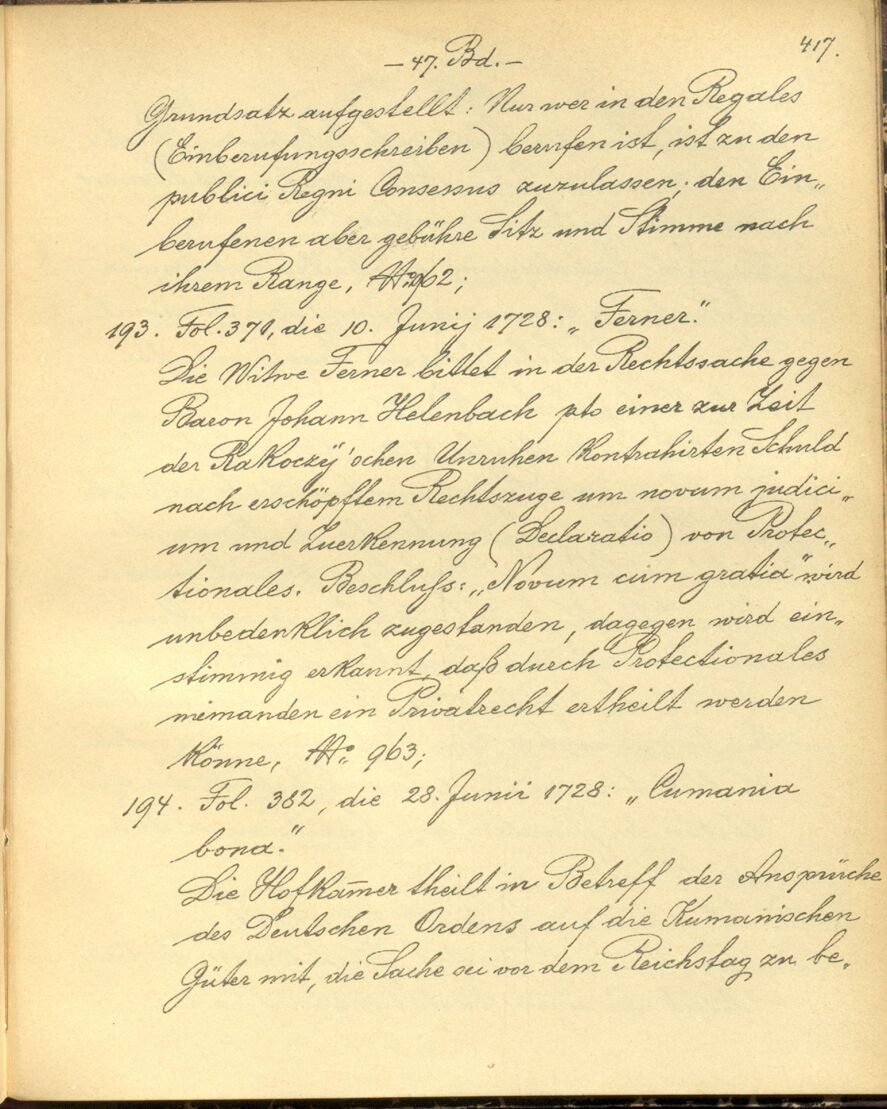 417.
– 47. Bd. –
Grundsatz aufgestellt: Nur wer in den Regales
(Einberufungsschreiben) berufen ist, ist zu den
publici Regni Consessus zuzulassen; den Ein„
berufenen aber gebühre Sitz und Stimme nach
ihrem Range, №: 962;
193. Fol. 371, die 10. Junij 1728: „Ferner.“
Die Witwe Ferner bittet in der Rechtssache gegen
Baron Johann Helenbach pto einer zur Zeit
der Rakoczÿ'schen Unruhen kontrahirten Schuld
nach erschöpftem Rechtszuge um novum judici„
um und Zuerkennung (Declaratio) von Protec„
tionales. Beschluß: „Novum cum gratia“ wird
unbedenklich zugestanden, dagegen wird ein„
stimmig erkannt, daß durch Protectionales
niemanden ein Privatrecht ertheilt werden
könne, №: 963;
194. Fol. 382, die 28. Junii 1728: „Cumania
bona.“
Die Hofkam̄er theilt in Betreff der Ansprüche
des Deutschen Ordens auf die Kumanischen
Güter mit, die Sache sei vor dem Reichstag zu be„